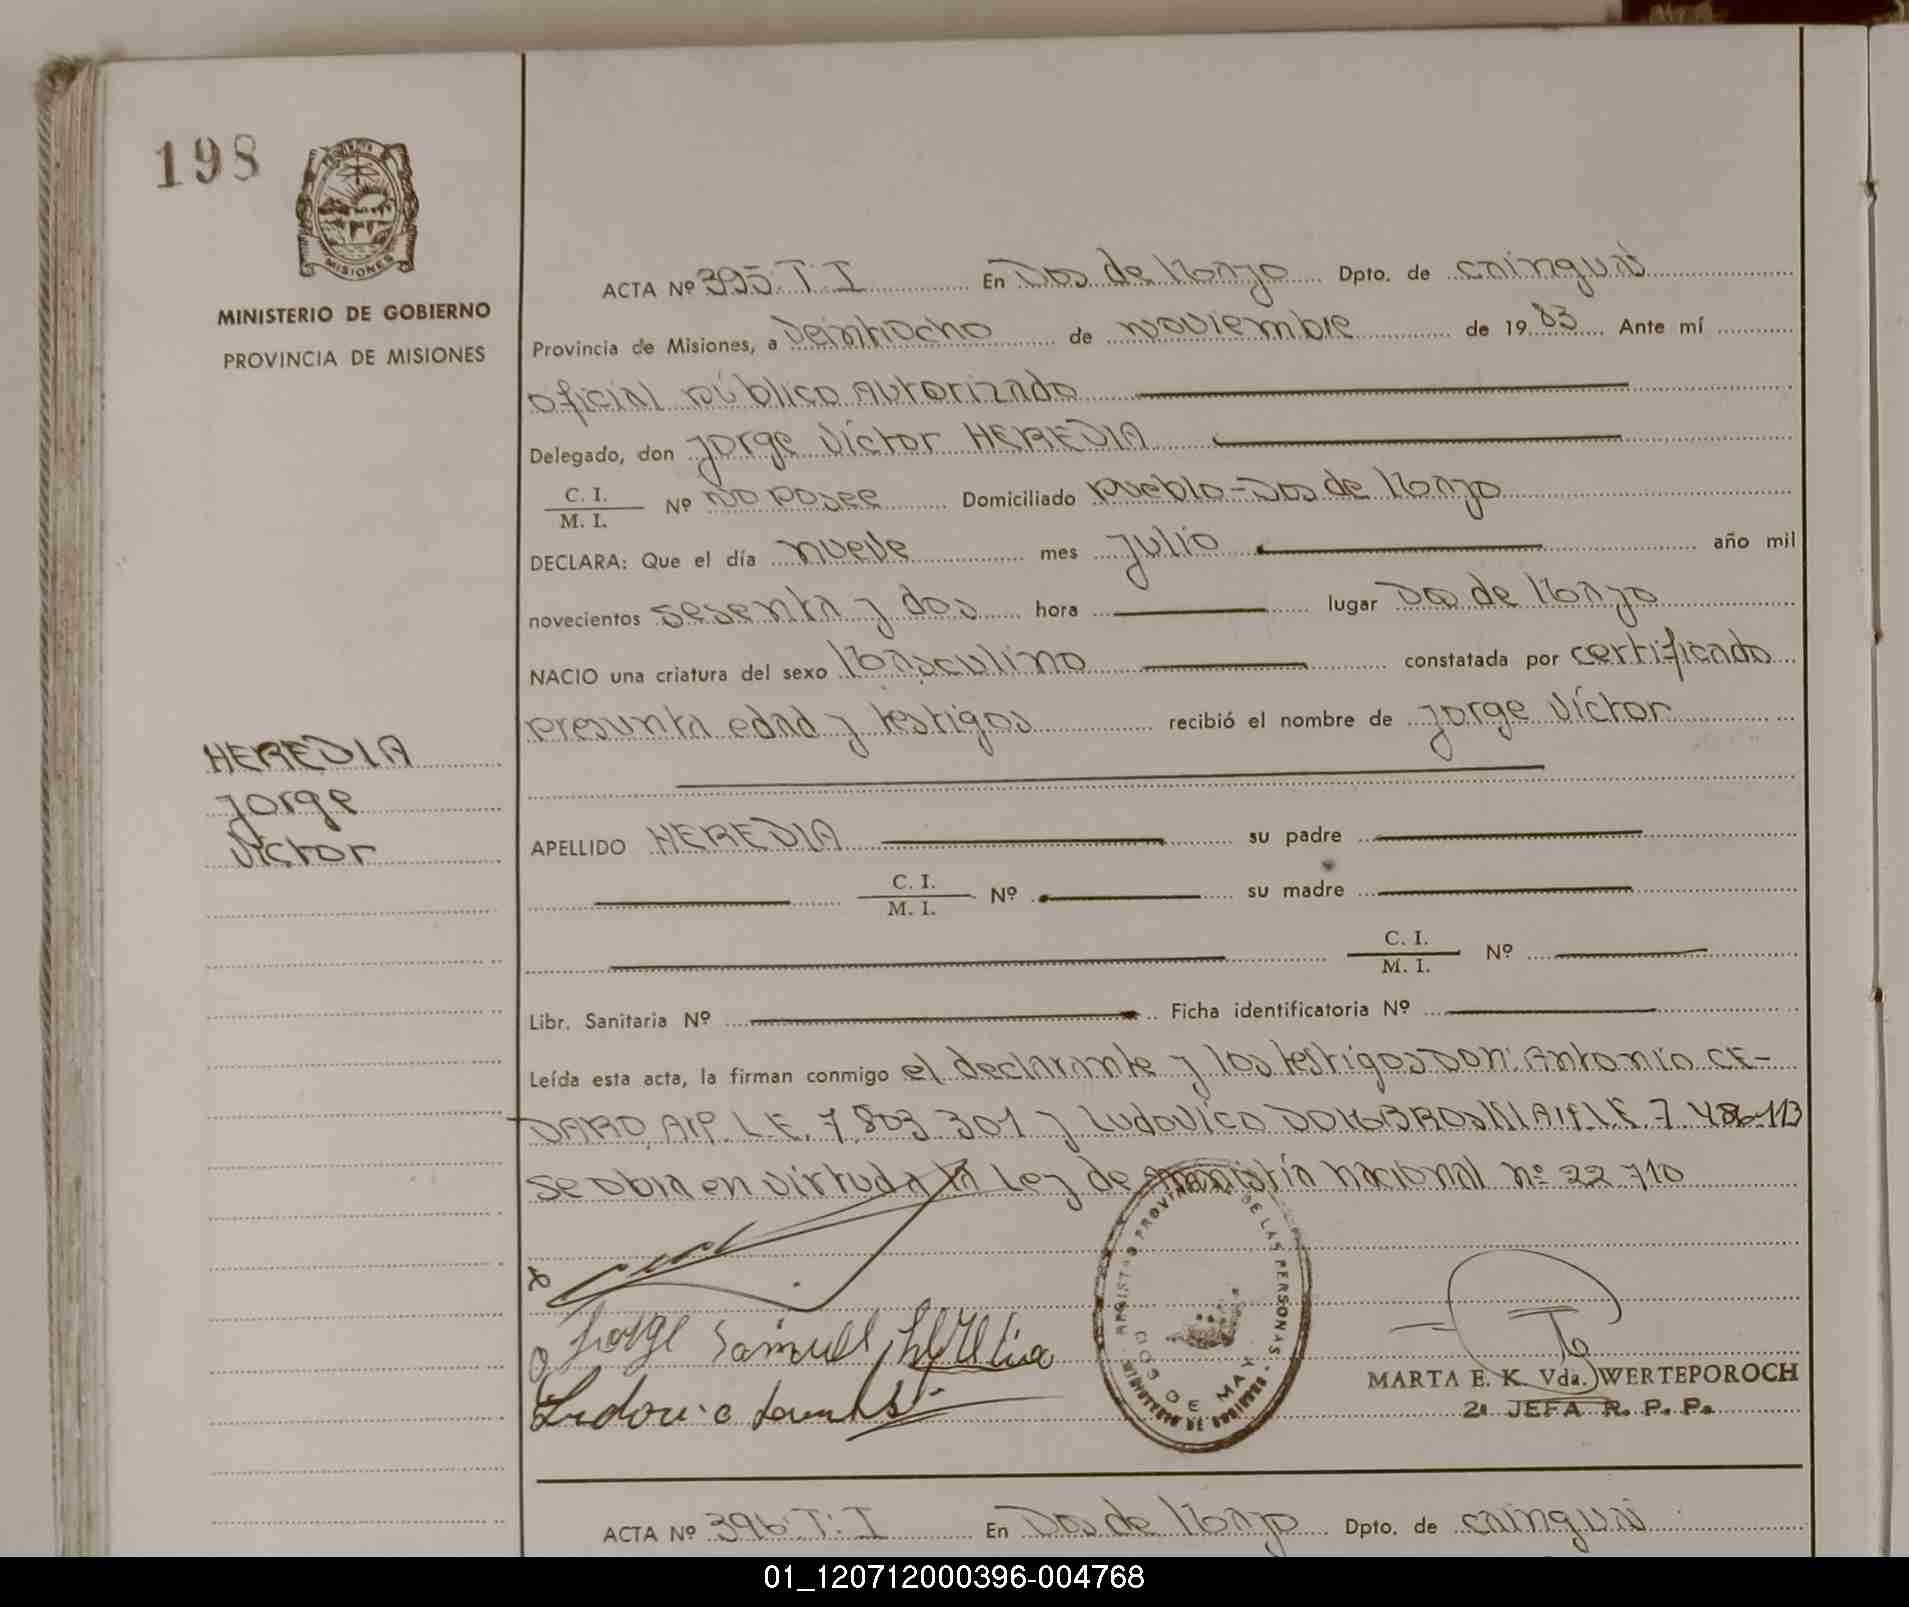 198
MISIONES
MINISTERIO DE GOBIERNO
PROVINCIA DE MISIONES
HEREDIA
Jorge
Víctor
ACTA Nº 395 T: I En Dos de Mayo Dpto. de Cainguás
Provincia de Misiones, a veintiocho de noviembre de 1983 Ante mí
oficial público Autorizado
Delegado, don Jorge Víctor HEREDIA
C. I.
M. I. Nº no posee Domiciliado pueblo-Dos de Mayo
DECLARA: Que el día nueve mes Julio año mil
novecientos sesenta y dos hora lugar Dos de Mayo
NACIO una criatura del sexo Masculino constatada por certificado
presunta edad y testigos recibió el nombre de Jorge Víctor
APELLIDO HEREDIA su padre
C. I.
M. I. Nº su madre
C. I.
M. I. Nº
Libr. Sanitaria Nº Ficha identificatoria Nº
Leída esta acta, la firman conmigo el declarante y los testigos Don: Antonio CE-
DARO, L.E. 7.803 301 y Ludovico DOMBROSKI L.E. 7.
se obra en virtud a la Ley de Amnistía Nacional nº 22 710
Jorge Samuel
REGISTRO PROVINCIAL DE LAS PERSONAS
DOS DE MAYO
MINISTERIO DE GOBIERNO
MARTA E. K. Vda. WERTEPOROCH
2ª JEFA R. P. P.
ACTA Nº 396 T: I En Dos de Mayo Dpto. de Cainguás
01_120712000396-004768